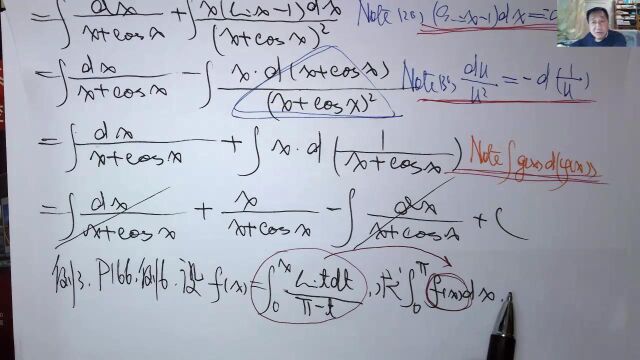 = ∫ dx/(x+cosx) + ∫ x(sinx-1)dx/(x+cosx)² Note(2B)
= ∫ dx/(x+cosx) - ∫ x·d(x+cosx)/(x+cosx)² Note(3), du/u² = -d(1/u)
= ∫ dx/(x+cosx) + ∫ x·d(1/(x+cosx)) Note
= ∫ dx/(x+cosx) + x/(x+cosx) - ∫ dx/(x+cosx) + C
例3. P166.例6. 设 f(x) = ∫₀ˣ sintdt/(π-t), 求 ∫₀^π f(x)dx.